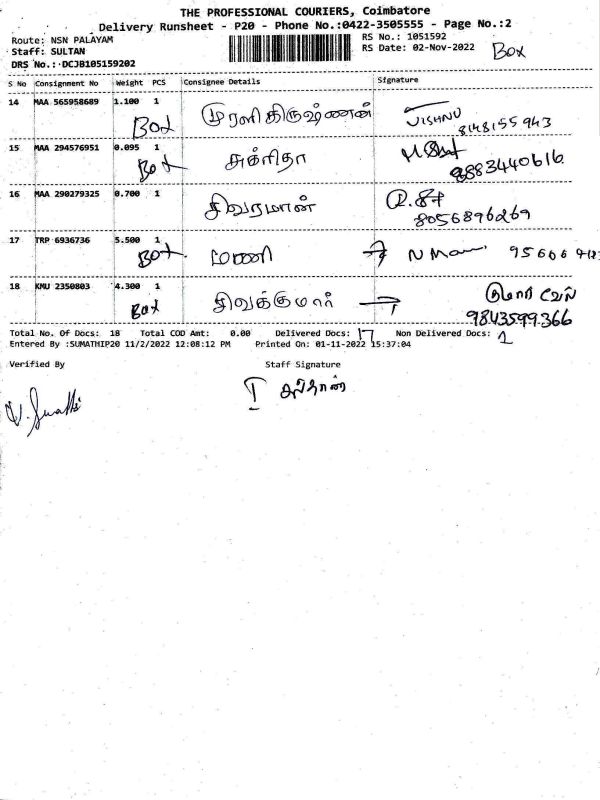 THE PROFESSIONAL COURIERS, Coimbatore
Delivery Runsheet - P20 - Phone No.:0422-3505555 - Page No.:2
Route: NSN PALAYAM
RS No.: 1051592
Staff: SULTAN
RS Date: 02-Nov-2022
Box
DRS No.: DCJB105159202
S No Consignment No Weight PCS Consignee Details Signature
14 MAA 565958689 1.100 1 Box முரளிகிருஷ்ணன் VISHNU
8148155943
15 MAA 294576951 0.095 1 Box சுக்ரிதா
9883440616
16 MAA 290279325 0.700 1 சிவரமான்
8056896269
17 TRP 6936736 5.500 1 Box மணி N Mani
18 KMU 2350803 4.300 1 Box சிவக்குமார் குமார வேல்
9843599366
Total No. Of Docs: 18 Total COD Amt: 0.00 Delivered Docs: 17 Non Delivered Docs: 1
Entered By :SUMATHIP20 11/2/2022 12:08:12 PM Printed On: 01-11-2022 15:37:04
Verified By Staff Signature
சுல்தான்
V. Sumathi